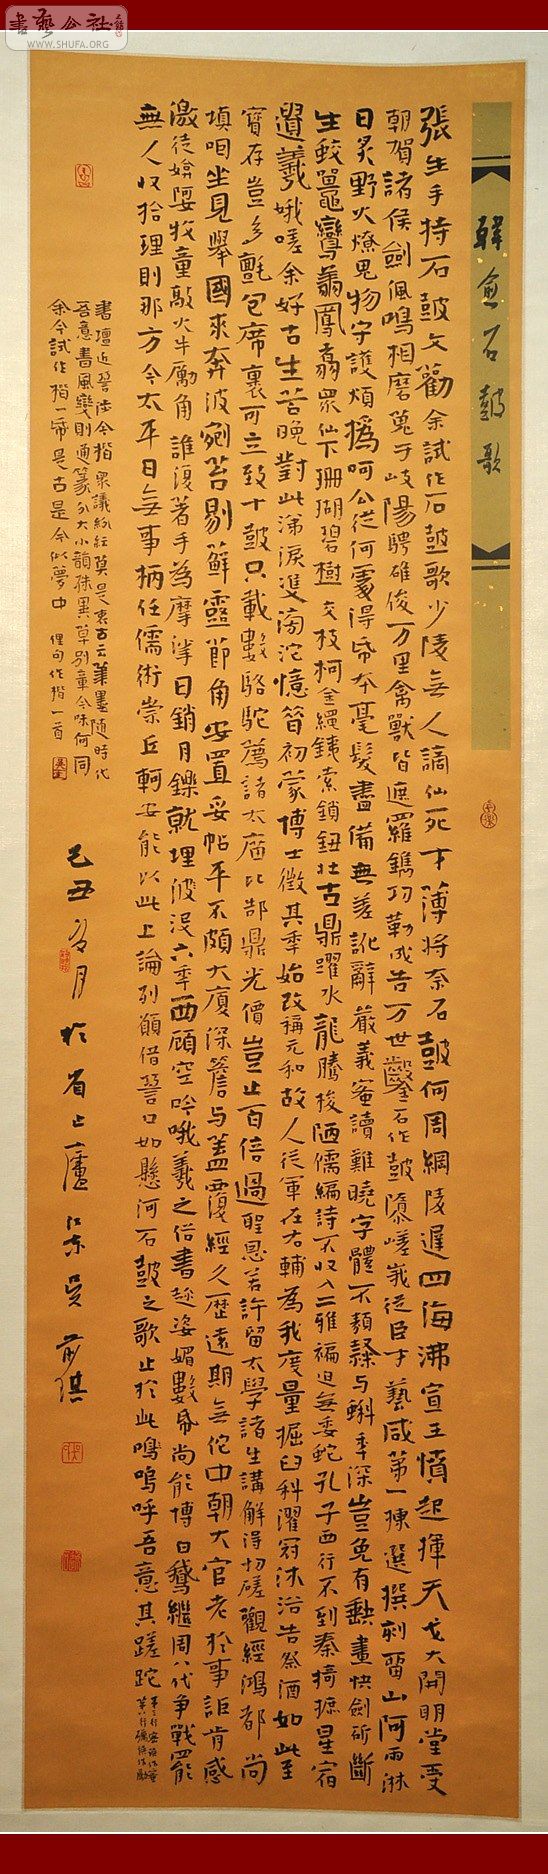 韓愈石鼓歌
張生手持石鼓文勸余試作石鼓歌少陵無人謫仙死才薄將奈石鼓何周綱陵遲四海沸宣王憤起揮天戈大開明堂受
朝賀諸侯劍佩鳴相磨蒐于岐陽騁雄俊万里禽獸皆遮羅鐫功勒成告万世鑿石作鼓隳嵯峨從臣才藝咸第一揀選撰刻留山阿雨淋
日炙野火燎鬼物守護煩撝呵公從何處得紙本毫髮盡備無差訛辭嚴義蜜讀難曉字體不類隸与蝌年深豈免有缺畫快劍斫斷
生蛟鼉鸞翥鳳翥眾仙下珊瑚碧樹交枝柯金繩鐵索鎖鈕壯古鼎躍水龍騰梭陋儒編詩不收入二雅褊迫無委蛇孔子西行不到秦掎摭星宿
遺羲娥嗟余好古生苦晚對此涕淚雙滂沱憶昔初蒙博士徵其年始改稱元和故人從軍在右輔為我度量掘臼科濯冠沐浴告祭酒如此至
寶存豈多氈包席裹可立致十鼓只載數駱駝薦諸太廟比郜鼎光價豈止百倍過聖恩若許留太學諸生講解得切磋觀經鴻都尚
填咽坐見舉國來奔波剜苔剔蘚靈節角安置妥帖平不頗大廈深簷与蓋覆經久歷遠期無佗中朝大官老於事詎肯感
激徒媕婀牧童敲火牛勵角誰復著手為摩挲日銷月鑠就埋沒六年西顧空吟哦羲之俗書趁姿媚數紙尚能博白鵝繼周八代爭戰罷
無人收拾理則那方今太平日無事柄任儒術崇丘軻安能以此上論列願借辯口如懸河石鼓之歌止於此嗚呼吾意其蹉跎
書壇近學今楷眾議紛紜莫是衷古云筆墨隨時代
吾意書風變則通篆分大小韻殊異草別章今味何同
余今試作楷一帋是古是今似夢中 俚句作楷一首
己丑 月於省上廬
書藝公社
WWW.SHUFA.ORG